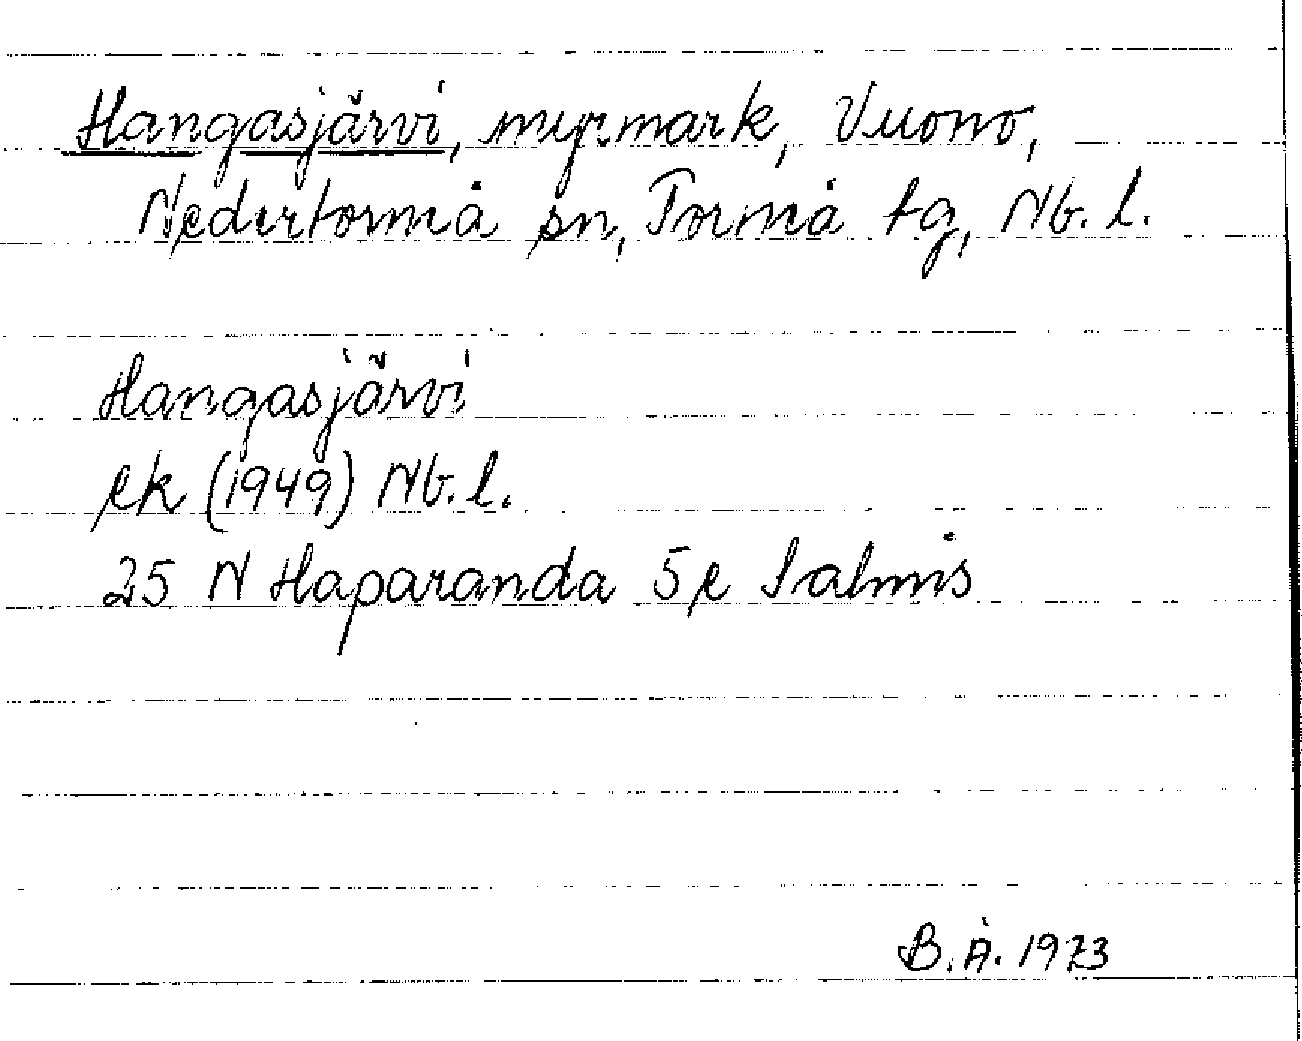 Hangasjärvi, myrmark, Vuono,
Nedertorneå sn, Torneå tg, Nb. l.
Hangasjärvi
ek (1949) Nb. l.
25 N Haparanda 5e Salmis
B. Å. 1973